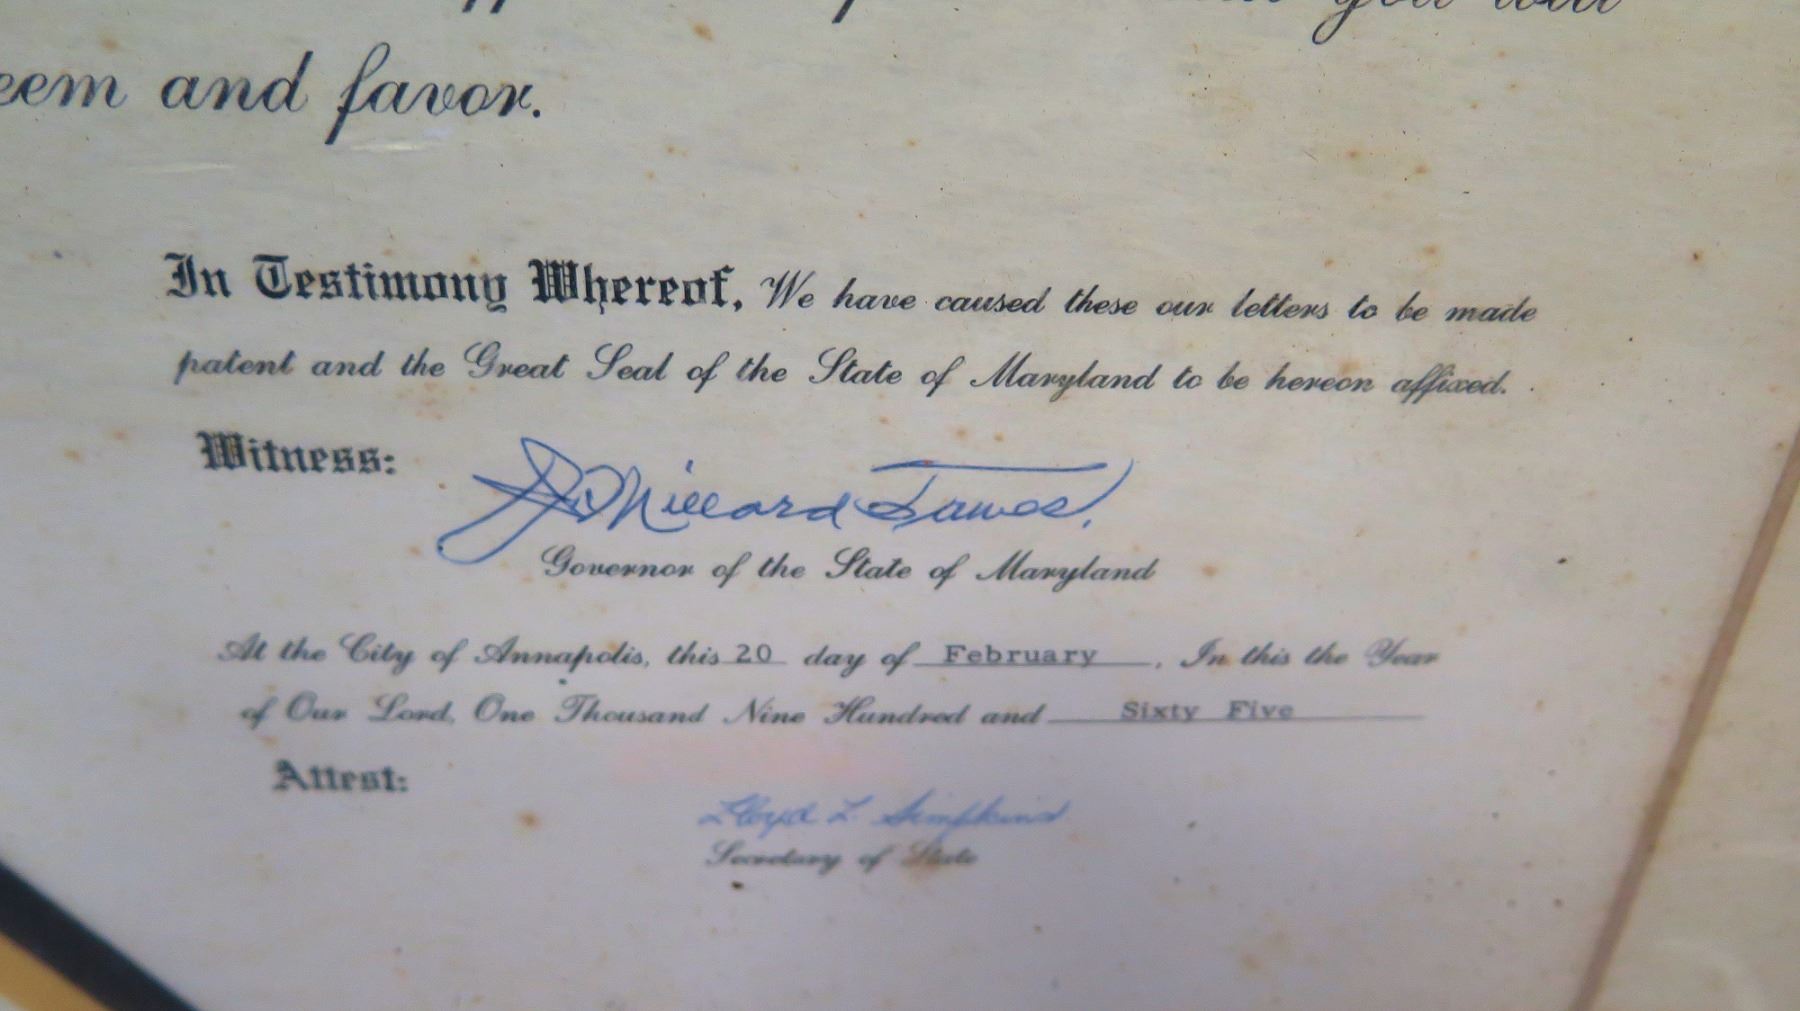 you will
eem and favor.
In Testimony Whereof, We have caused these our letters to be made
patent and the Great Seal of the State of Maryland to be hereon affixed.
Witness: J. Millard Tawes
Governor of the State of Maryland
At the City of Annapolis, this 20 day of February, In this the Year
of Our Lord, One Thousand Nine Hundred and Sixty Five
Attest:
Lloyd L. Simpkins
Secretary of State